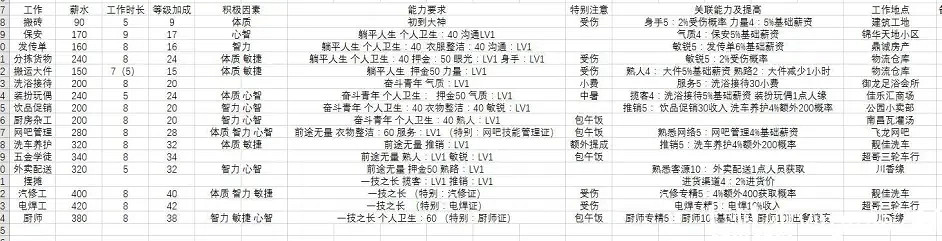 7 工作 薪水 工作时长 等级加成 积极因素 能力要求 特别注意 关联能力及提高 工作地点
8 搬砖 90 5 9 体质 初到大神 受伤 身手5：2%受伤概率 力量4：5%基础薪资 建筑工地
9 保安 170 9 17 心智 躺平人生 个人卫生：40 沟通LV1 气质4：保安5%基础薪资 锦华天地小区
0 发传单 160 8 16 智力 躺平人生 个人卫生：40 衣服整洁：40 沟通：LV1 敏锐5：发传单6%基础薪资 鼎诚房产
1 分拣货物 240 8 24 体质 敏捷 躺平人生 个人卫生：40 押金：50 眼光：LV1 身手：LV1 受伤 敏锐5：2%受伤概率 物流仓库
2 搬运大件 150 7（5） 15 体质 敏捷 躺平人生 押金50 力量：LV1 受伤 熟人4：大件5%基础薪资 熟路2：大件减少1小时 物流仓库
3 洗浴接待 200 8 20 奋斗青年 气质：LV1 小费 服务5：洗浴接待30小费 御龙足浴会所
4 装扮玩偶 240 5 24 体质 心智 奋斗青年 个人卫生： 押金50 气质：LV1 中暑 揽客4：洗浴接待5%基础薪资 装扮玩偶1点人缘 佳乐汇商场
5 饮品促销 200 8 20 智力 心智 奋斗青年 个人卫生：40 衣物整洁：40 敏锐：LV1 推销5：饮品促销30收入 洗车养护4%额外200概率 公园小卖部
6 厨房杂工 200 8 20 智力 心智 奋斗青年 个人卫生：40 包午饭 南昌瓦灌汤
7 网吧管理 280 8 28 体质 智力 心智 前途无量 衣物整洁：60 服务：LV1 （特别：网吧技能管理证） 包午饭 熟悉网络5：网吧管理4%基础薪资 飞龙网吧
8 洗车养护 320 8 32 体质 敏捷 前途无量 推销：LV1 额外提成 推销5：洗车养护4%额外200概率 靓佳洗车
9 五金学徒 340 8 34 前途无量 熟人：LV1 敏锐：LV1 包午饭 超哥三轮车行
0 外卖配送 320 5 32 智力 心智 前途无量 押金50 熟路：LV1 熟悉客源10：外卖配送1点人员获取 川香缘
1 摆摊 一技之长 揽客：LV1 推销：LV1 进货渠道4：2%进货价
2 汽修工 400 8 40 体质 智力 敏捷 一技之长 （特别：汽修证） 受伤 汽修专精5：4%额外400获取概率 靓佳洗车
3 电焊工 420 8 42 一技之长 （特别：电焊证） 受伤 电焊专精5：电焊10%收入 超哥三轮车行
4 厨师 380 8 38 智力 敏捷 心智 一技之长 个人卫生：60 （特别：厨师证） 包午饭 厨师专精5：厨师10%基础薪资 厨师1 川香缘
5
6